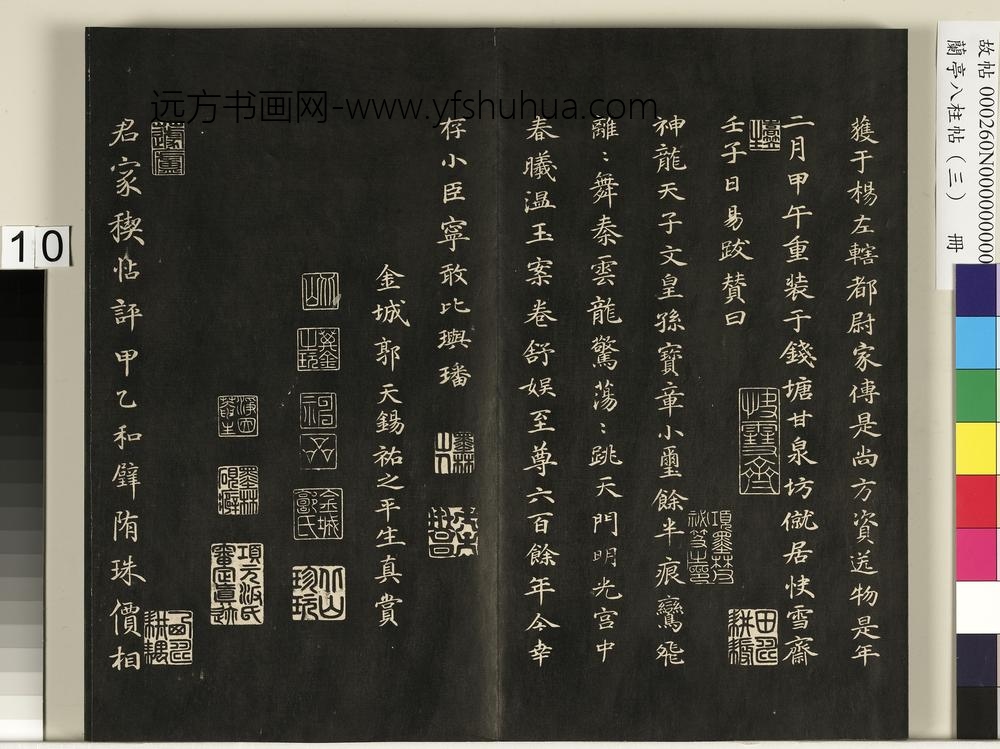 獲于楊左轄都尉家傳是尚方資送物是年
二月甲午重装于錢塘甘泉坊僦居快雪齋
壬子日易跋賛曰
神龍天子文皇孫寳章小璽餘半痕鸞飛
離〻舞秦雲龍驚蕩〻跳天門明光宫中
春曦温玉案卷舒娱至尊六百餘年今幸
存小臣寧敢比璵璠
金城郭天錫祐之平生真賞
名家稧帖評甲乙和璧隋珠價相
快雪齋
項墨林祕笈之章
墨林山人
金城郭氏
項元汴氏審定真迹
墨林硯癖
田疇耕耨
故帖 000260N000000000
蘭亭八柱帖（三） 冊
10
远方书画网-www.yfshuhua.com